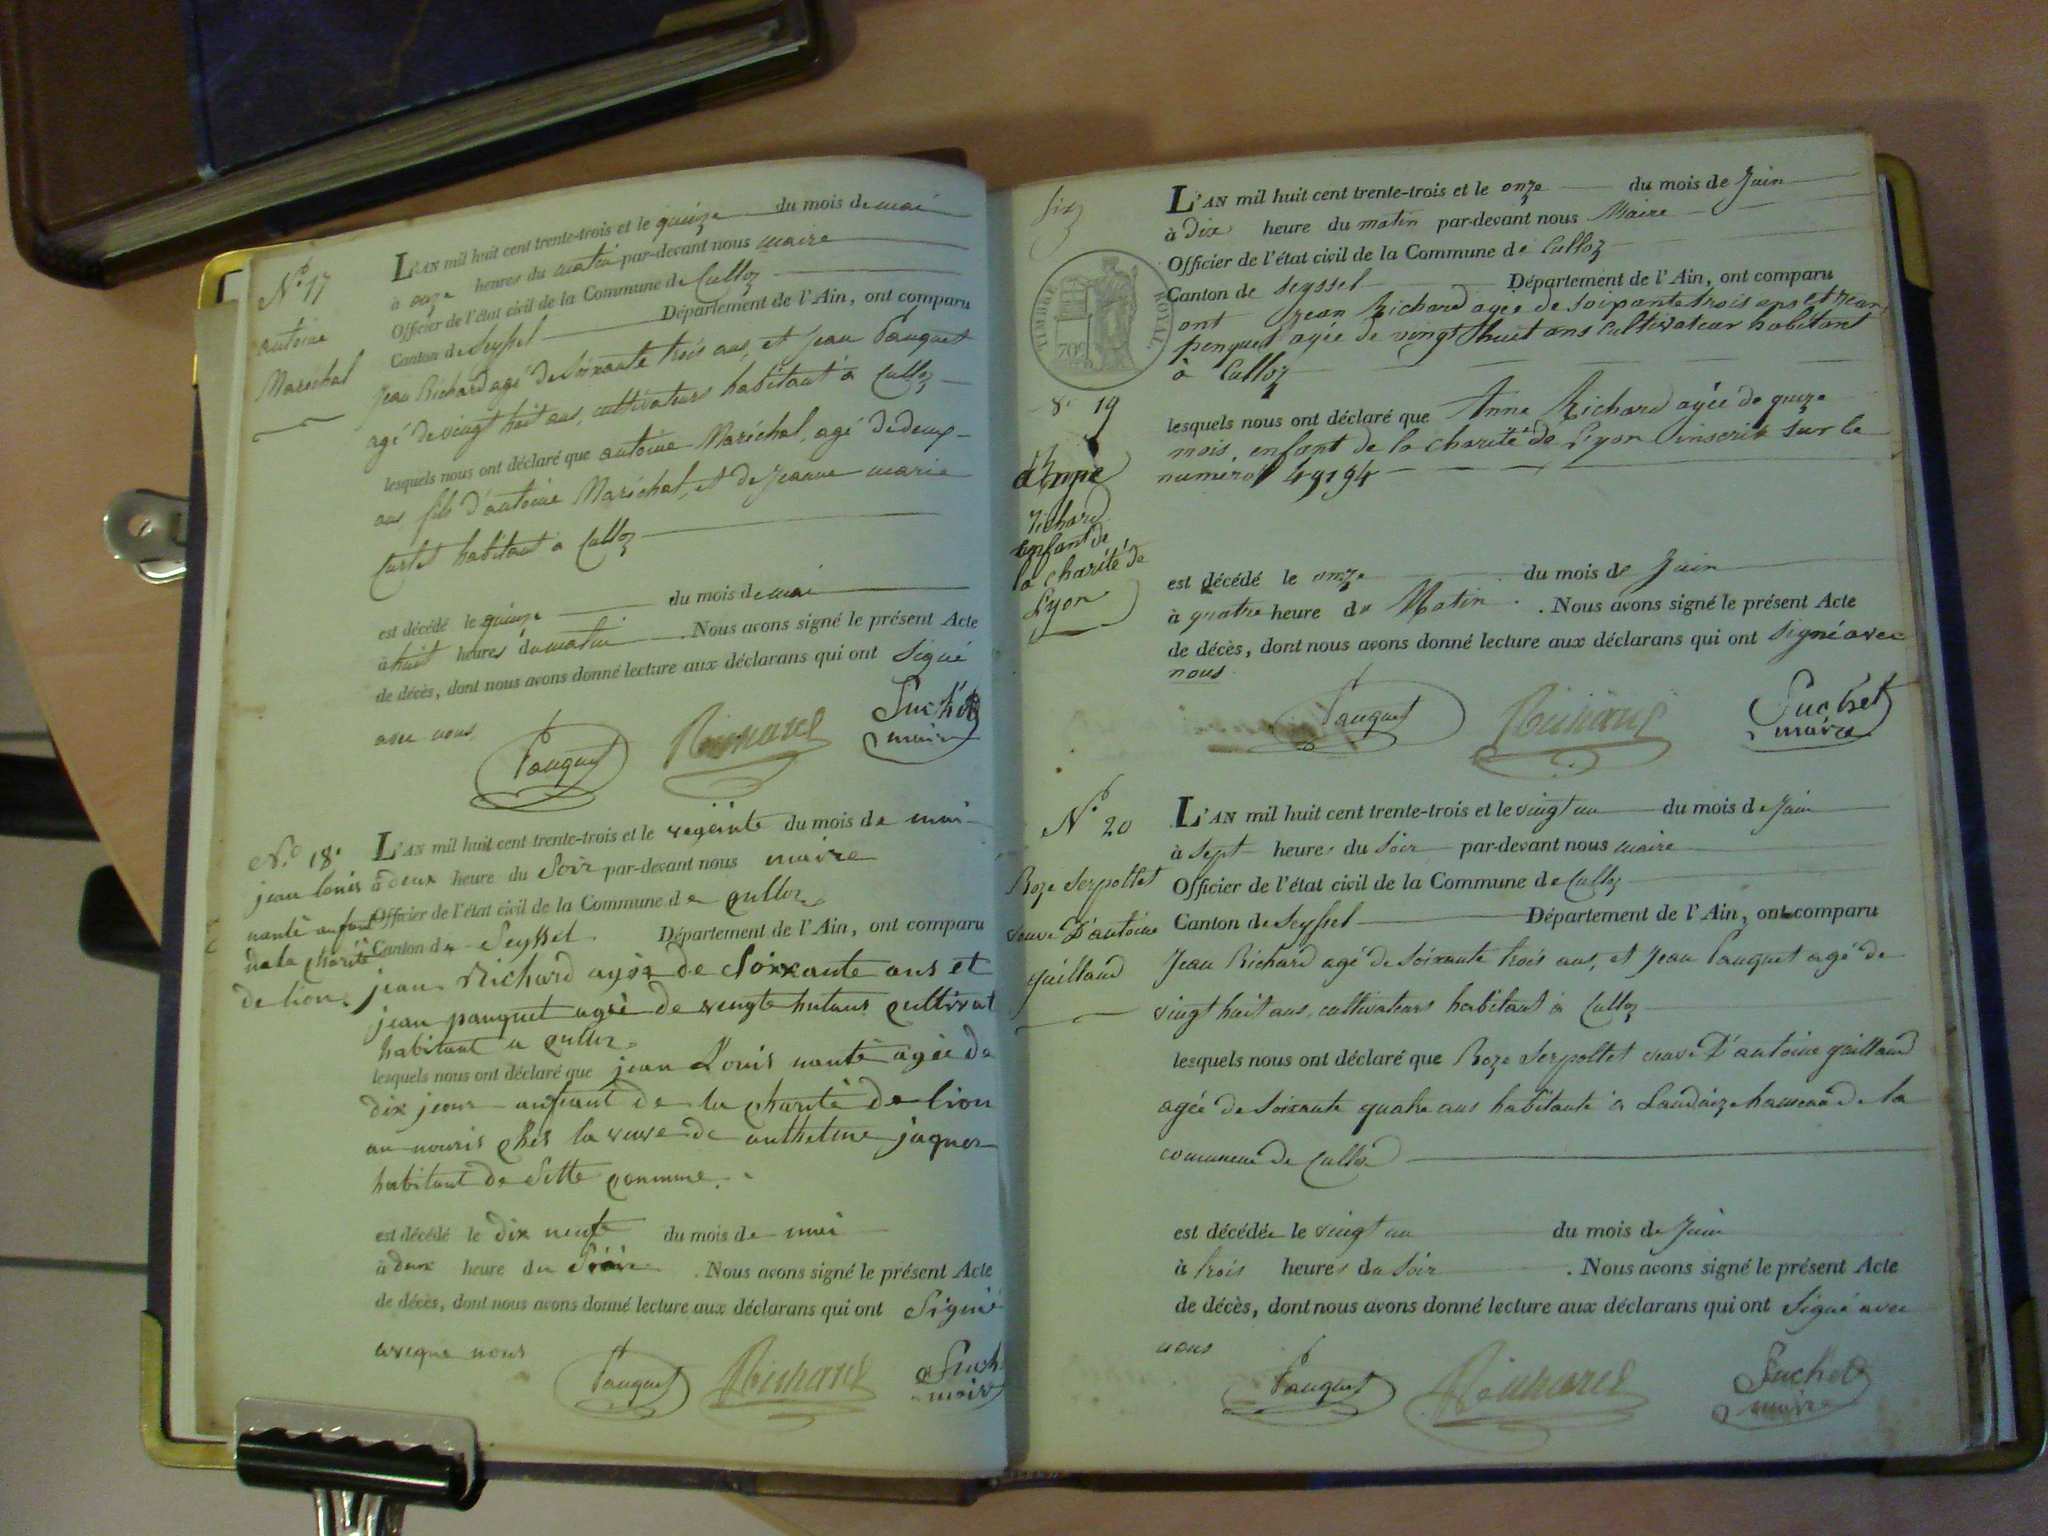 N.º 17
antoine
Maréchal
L'AN mil huit cent trente-trois et le quinze du mois de mai
à onze heures du matin par-devant nous maire
Officier de l'état civil de la Commune de Culloz
Canton de Seyssel Département de l'Ain, ont comparu
Jean Richard agé de soixante trois ans, et Jean Pauquet
agé de vingt huit ans, cultivateurs habitant à Culloz
lesquels nous ont déclaré que antoine Maréchal, agé de deux
ans fils d'antoine Maréchal, et de Jeanne marie
habitant a Culloz
est décédé le quinze du mois de mai
à huit heures du matin . Nous avons signé le présent Acte
de décès, dont nous avons donné lecture aux déclarans qui ont signé
avec nous
Pauquet Richard Suchet
maire
N.º 18.
jean louis
nanté anfant
de la charité
de lion.
L'AN mil huit cent trente-trois et le du mois de mai
à deux heure du Soir par-devant nous maire
Officier de l'état civil de la Commune de qulloz
Canton de Seyssel Département de l'Ain, ont comparu
jean Richard agée de Soixante ans et
jean pauquet agée de vingte hutans qultivat
habitant a qulloz
lesquels nous ont déclaré que jean Louis nanté agée de
dix jeour anfant de la charité de lion
an nouris ches la veuve de anthelme jaques
habitant de Sette comune.
est décédé le dix neufe du mois de mai
à deux heure du Soir . Nous avons signé le présent Acte
de décès, dont nous avons donné lecture aux déclarans qui ont Signié
aveque nous
Pauquet Richard Such
maire
six
TIMBRE ROYAL
70c
19
d'Anne
richard
enfant de
la charité de
Lyon
L'AN mil huit cent trente-trois et le onze du mois de Juin
à dix heure du matin par-devant nous Maire
Officier de l'état civil de la Commune de Culloz
Canton de Seyssel Département de l'Ain, ont comparu
ont Jean Richard agée de soixante trois ans et Jean
penquet agée de vingt huit ans cultivateur habitant
à Culloz
lesquels nous ont déclaré que Anne Richard agée de quinze
mois, enfant de la charité de Lyon inscrit sur le
numero 49194
est décédé le onze du mois de Juin
à quatre heure du Matin . Nous avons signé le présent Acte
de décès, dont nous avons donné lecture aux déclarans qui ont signé avec
nous
Pauquet Richard Suchet
maire
N.º 20
Roze Serpollet
veuve D'antoine
gaillard
L'AN mil huit cent trente-trois et le vingt un du mois de Juin
à Sept heures du Soir par-devant nous maire
Officier de l'état civil de la Commune de Culloz
Canton de Seyssel Département de l'Ain, ont comparu
Jean Richard agé de soixante trois ans, et Jean Pauquet agé de
vingt huit ans, cultivateurs habitant à Culloz
lesquels nous ont déclaré que Roze Serpollet veuve D'antoine gaillard
agée de soixante quatre ans habitante à Landaize hameau de la
commune de Culloz
est décédée le vingt un du mois de Juin
à trois heures du Soir . Nous avons signé le présent Acte
de décès, dont nous avons donné lecture aux déclarans qui ont Signé avec
nous
Pauquet Richard Suchet
maire